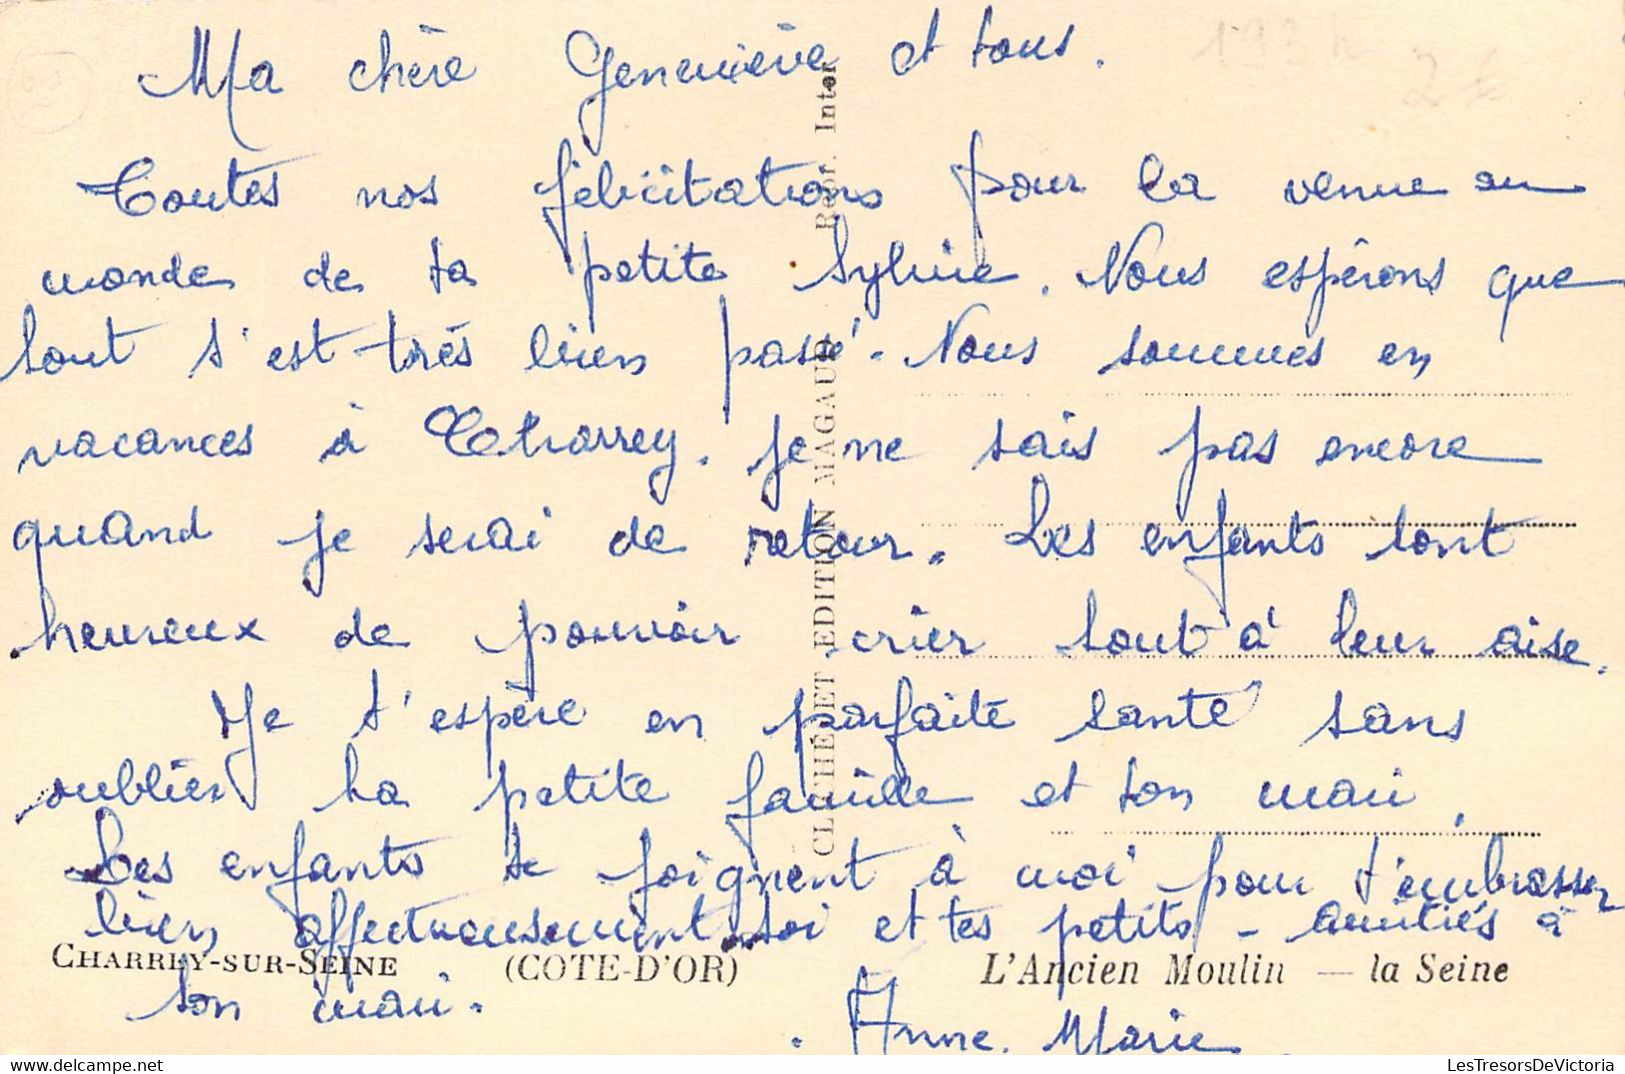 Ma chère Geneviève et tous.
Toutes nos félicitations pour la venue au
monde de ta petite Sylvie. Nous espérons que
tout s'est très bien passé. Nous sommes en
vacances à Charrey. Je ne sais pas encore
quand je serai de retour. Les enfants sont
heureux de pouvoir crier tout à leur aise.
Je t'espère en parfaite santé sans
oublier ta petite famille et ton mari.
Les enfants se joignent à moi pour t'embrasser
bien affectueusement toi et tes petits - amitiés à
ton mari.
Anne. Marie.
CHARREY-SUR-SEINE (COTE-D'OR) L'Ancien Moulin — la Seine
CLICHÉ ET EDITION MAGAUD Repr. Inter
2€
LesTresorsDeVictoria
https://www.delcampe.net